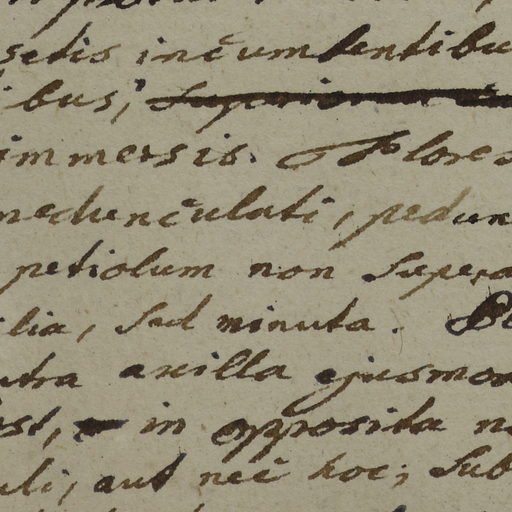 setis incumbentibu
ibus,
immersis. Flores
pedunculati, pedun
petiolum non supera
lia, sed minuta.
utra axilla ejusmod
est, in opposita n
uli, aut nec hoc; sub